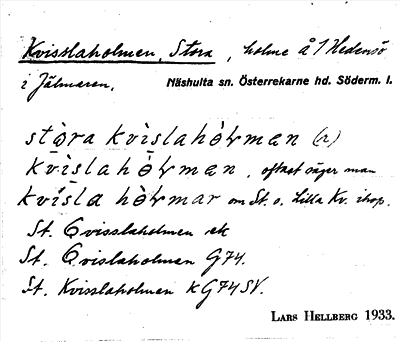 Kvisslaholmen, Stora, holme å 1 Hedensö
i Jälmaren. Näshulta sn. Österrekarne hd. Söderm. l.
stòra kvìslahòɫman (r)
kvìslahòɫman, oftast säger man
kvìsla hòɫmar om St. o. Lilla Kv. ihop.
St. Qvisslaholmen ek
St. Qvislaholman G74.
St. Kvisslaholmen k G74 SV.
LARS HELLBERG 1933.